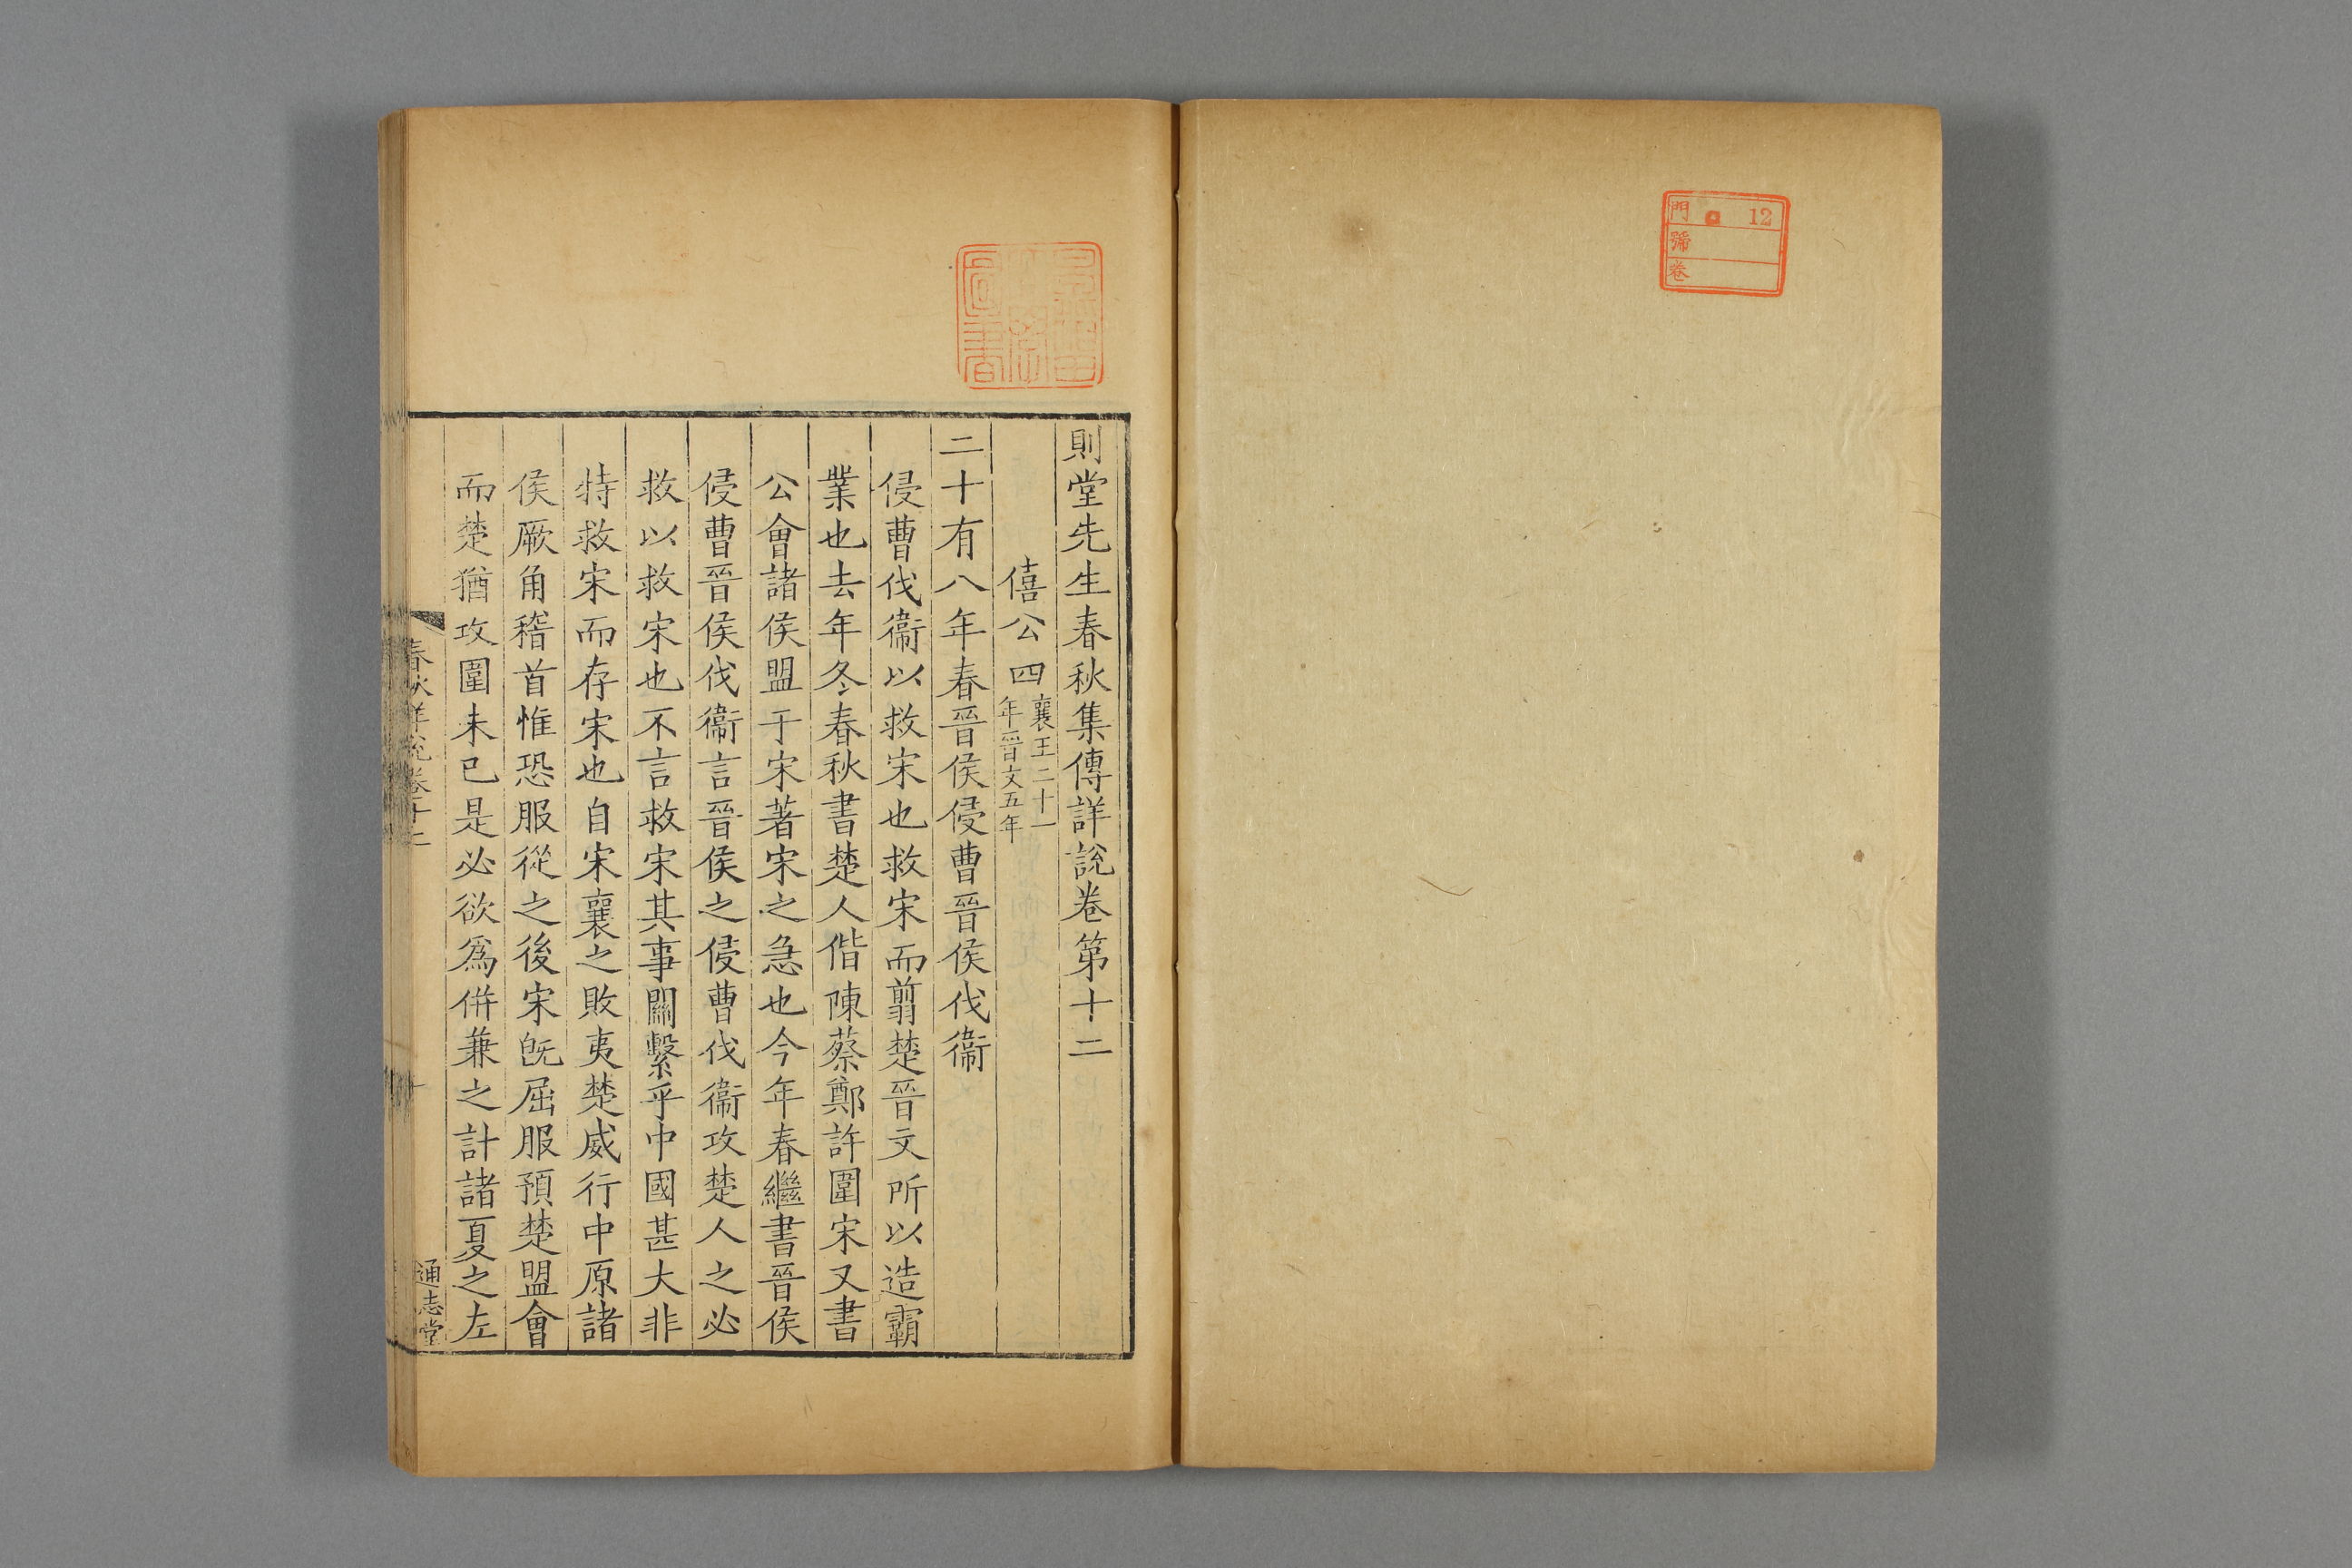 門 12
號
卷
則堂先生春秋集傳詳說卷第十二
僖公四 襄王二十一
年晉文五年
二十有八年春晉侯侵曹晉侯伐衞
侵曹伐衞以救宋也救宋而翦楚晉文所以造霸
業也去年冬春秋書楚人偕陳蔡鄭許圍宋又書
公會諸侯盟于宋著宋之急也今年春繼書晉侯
侵曹晉侯伐衞言晉侯之侵曹伐衞攻楚人之必
救以救宋也不言救宋其事關繫乎中國甚大非
特救宋而存宋也自宋襄之敗夷楚威行中原諸
侯厥角稽首惟恐服從之後宋旣屈服預楚盟會
而楚猶攻圍未已是必欲爲併兼之計諸夏之左
春秋詳說卷十二
通志堂